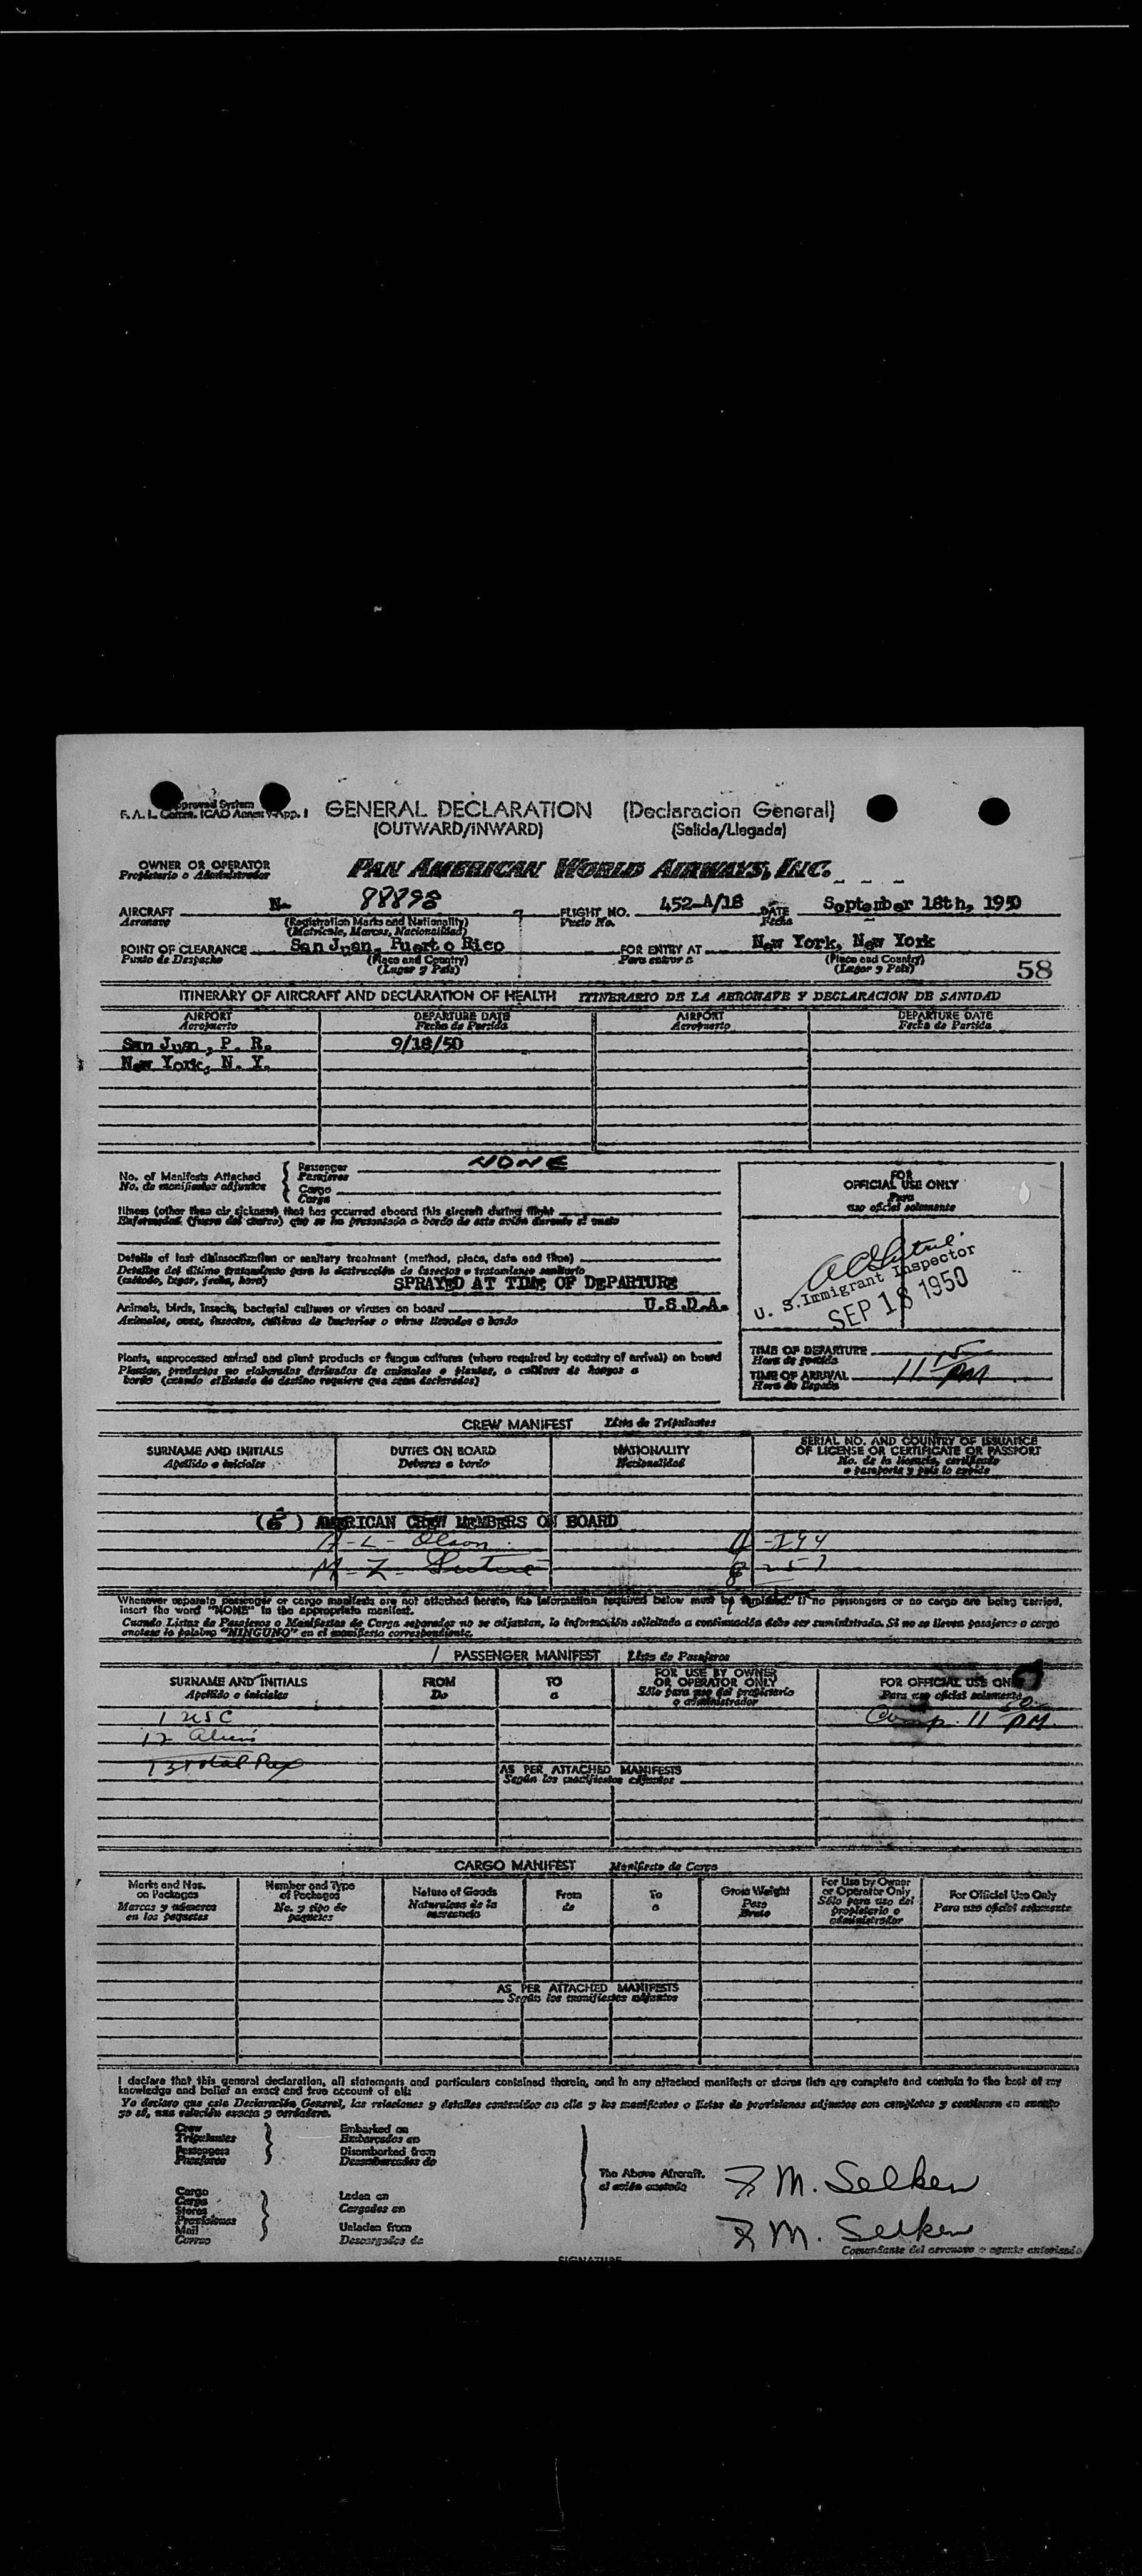 Approved System
F. A. L. Comm. ICAO Annex 9-App. 1
GENERAL DECLARATION (Declaracion General)
(OUTWARD/INWARD) (Salida/Llegada)
OWNER OR OPERATOR
Propietario o Administrador
PAN AMERICAN WORLD AIRWAYS, INC.
AIRCRAFT N- 88898 FLIGHT NO. 452-A/18 DATE September 18th, 1950
Aeronave (Registration Marks and Nationality) Vuelo No. Fecha
(Matricula, Marcas, Nacionalidad)
POINT OF CLEARANCE San Juan, Puerto Rico FOR ENTRY AT New York, New York
Punto de Despacho (Place and Country) Para entrar a (Place and Country)
(Lugar y País) (Lugar y País)
58
ITINERARY OF AIRCRAFT AND DECLARATION OF HEALTH ITINERARIO DE LA AERONAVE Y DECLARACION DE SANIDAD
AIRPORT DEPARTURE DATE AIRPORT DEPARTURE DATE
Aeropuerto Fecha de Partida Aeropuerto Fecha de Partida
San Juan, P. R. 9/18/50
New York, N. Y.
No. of Manifests Attached { Passenger NONE
No. de manifiestos adjuntos Pasajeros
Cargo
Carga
Illness (other than air sickness) that has occurred aboard this aircraft during flight
Enfermedad (fuera del mareo) que se ha presentado a bordo de este avión durante el vuelo
Details of last disinsectization or sanitary treatment (method, place, date and time)
Detalles del último tratamiento para la destrucción de insectos o tratamiento sanitario
(método, lugar, fecha, hora)
SPRAYED AT TIME OF DEPARTURE
U.S.D.A.
Animals, birds, insects, bacterial cultures or viruses on board
Animales, aves, insectos, cultivos de bacterias o virus llevados a bordo
Plants, unprocessed animal and plant products or fungus cultures (where required by country of arrival) on board
Plantas, productos no elaborados derivados de animales o plantas, o cultivos de hongos a
bordo (cuando el Estado de destino requiere que sean declarados)
FOR
OFFICIAL USE ONLY
Para
uso oficial solamente
U. S. Immigrant Inspector
SEP 18 1950
TIME OF DEPARTURE
Hora de partida
TIME OF ARRIVAL 11 15 PM
Hora de llegada
CREW MANIFEST Lista de Tripulantes
SURNAME AND INITIALS DUTIES ON BOARD NATIONALITY SERIAL NO. AND COUNTRY OF ISSUANCE
OF LICENSE OR CERTIFICATE OR PASSPORT
Apellido e iniciales Deberes a bordo Nacionalidad No. de la licencia, certificado
o pasaporte y país lo expide
( 8 ) AMERICAN CREW MEMBERS ON BOARD
A - L - Olson
M - Z -
Whenever separate passenger or cargo manifests are not attached hereto, the information required below must be furnished. If no passengers or no cargo are being carried,
insert the word "NONE" in the appropriate manifest.
Cuando Listas de Pasajeros o Manifiestos de Carga separados no se adjuntan, la información solicitada a continuación debe ser suministrada. Si no se llevan pasajeros o cargo
anotese la palabra "NINGUNO" en el manifiesto correspondiente.
PASSENGER MANIFEST Lista de Pasajeros
SURNAME AND INITIALS FROM TO FOR USE BY OWNER
OR OPERATOR ONLY FOR OFFICIAL USE ONLY
Apellido e iniciales De a Sólo para uso del propietario
o administrador Para uso oficial solamente
1 USC Comp. 11 50 PM
12 Aliens
13 Total Pax
AS PER ATTACHED MANIFESTS
Según los manifiestos adjuntos
CARGO MANIFEST Manifiesto de Carga
Marks and Nos.
on Packages
Marcas y números
en los paquetes
Number and Type
of Packages
No. y tipo de
paquetes
Nature of Goods
Naturaleza de la
mercancía
From
de
To
a
Gross Weight
Peso
Bruto
For Use by Owner
or Operator Only
Sólo para uso del
propietario o
administrador
For Official Use Only
Para uso oficial solamente
AS PER ATTACHED MANIFESTS
Según los manifiestos adjuntos
I declare that this general declaration, all statements and particulars contained therein, and in any attached manifests or stores lists are complete and contain to the best of my
knowledge and belief an exact and true account of all:
Yo declaro que esta Declaración General, las relaciones y detalles contenidos en ella y los manifiestos o listas de provisiones adjuntos son completos y contienen en cuanto
yo sé, una relación exacta y verdadera.
Crew
Tripulantes
Passengers
Pasajeros
Embarked on
Embarcados en
Disembarked from
Desembarcados de
Cargo
Carga
Stores
Provisiones
Mail
Correo
Laden on
Cargados en
Unladen from
Descargados de
The Above Aircraft.
el avión anotado
F M. Selken
F M. Selken
Comandante del aeronave o agente autorizado
SIGNATURE